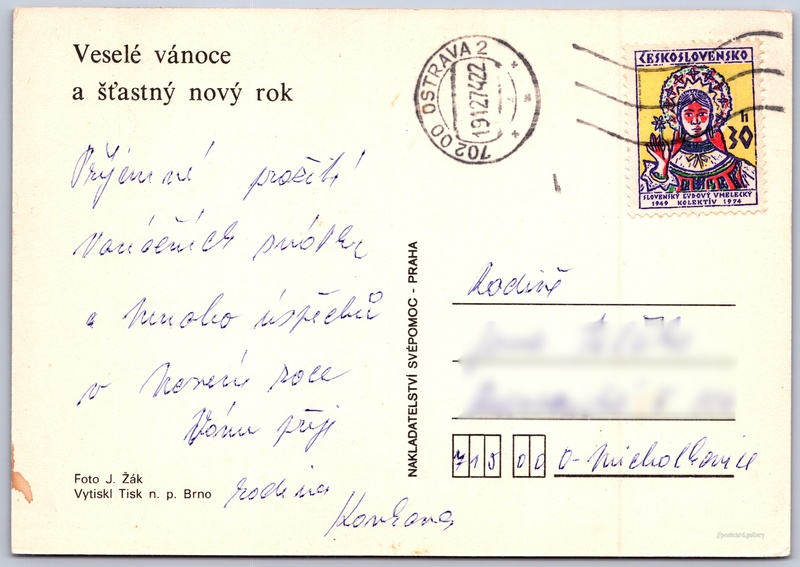 Veselé vánoce
a šťastný nový rok
Příjemné prožití
Vánočních svátků
a mnoho úspěchů
v novém roce
Vám přejí
rodina
Foto J. Žák
Vytiskl Tisk n. p. Brno
NAKLADATELSTVÍ SVÉPOMOC - PRAHA
70200 OSTRAVA 2
191274.22
ČESKOSLOVENSKO
30 h
SLOVENSKÝ ĽUDOVÝ UMELECKÝ
1949 KOLEKTÍV 1974
Rodině
715 00 O-Michálkovice